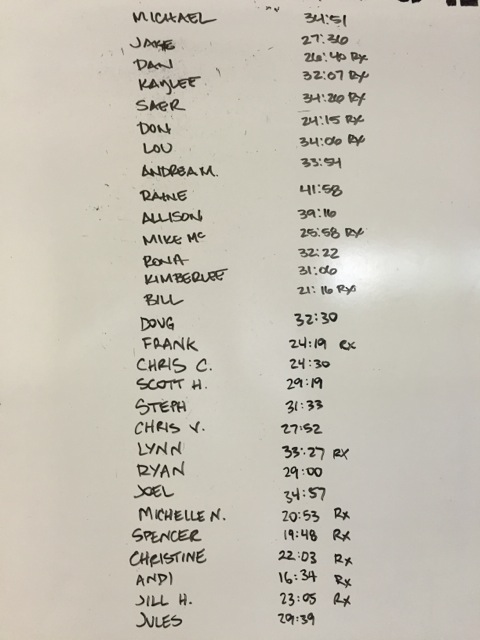 MICHAEL 34:51
JAKE 27:36
DAN 26:40 Rx
KAYLEE 32:07 Rx
SAER 34:26 Rx
DON 24:15 Rx
LOU 34:06 Rx
ANDREA M. 33:54
RAINE 41:58
ALLISON 39:16
MIKE MC 25:58 Rx
RONA 32:22
KIMBERLEE 31:06
BILL 21:16 Rx
DOUG 32:30
FRANK 24:19 Rx
CHRIS C. 24:30
SCOTT H. 29:19
STEPH 31:33
CHRIS V. 27:52
LYNN 33:27 Rx
RYAN 29:00
JOEL 34:57
MICHELLE N. 20:53 Rx
SPENCER 19:48 Rx
CHRISTINE 22:03 Rx
ANDI 16:34 Rx
JILL H. 23:05 Rx
JULES 29:39